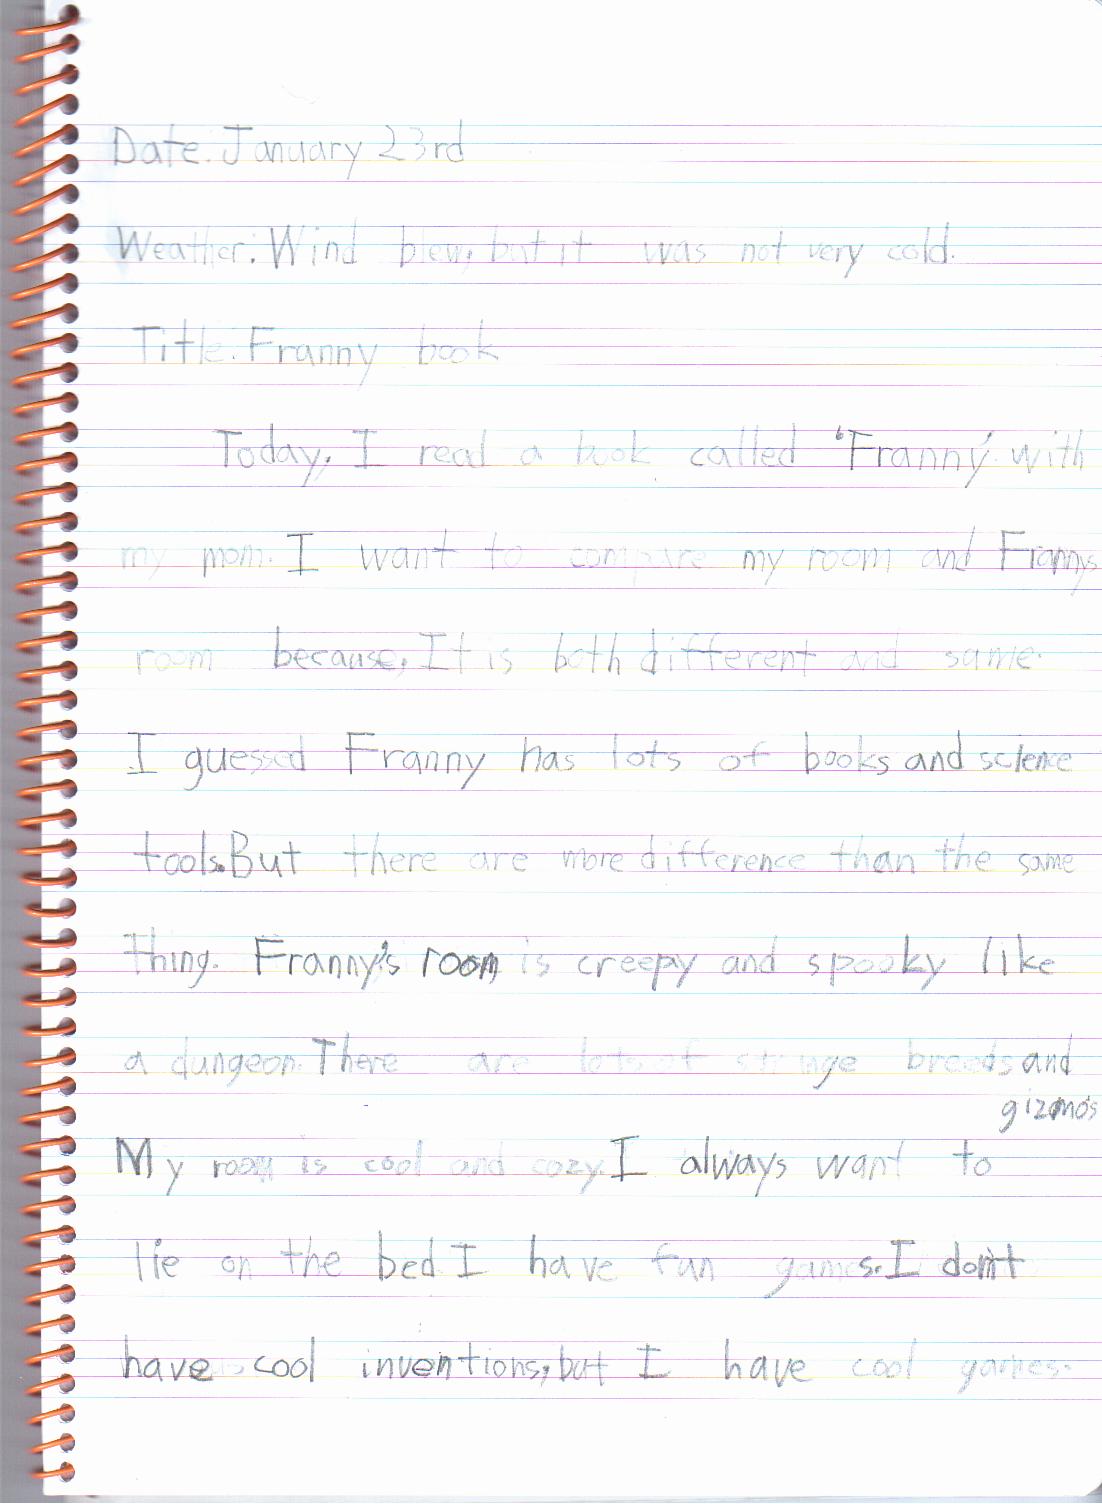 Date. January 23rd
Weather: Wind blew, but it was not very cold.
Title. Franny book
Today, I read a book called 'Franny' with
my mom. I want to compare my room and Frannys
room because, It is both different and same.
I guessed Franny has lots of books and science
tools. But there are more difference than the same
thing. Franny's room is creepy and spooky like
a dungeon. There are lots of strange breeds and
gizmo's
My room is cool and cozy. I always want to
lie on the bed. I have fun games. I don't
have cool inventions, but I have cool games.